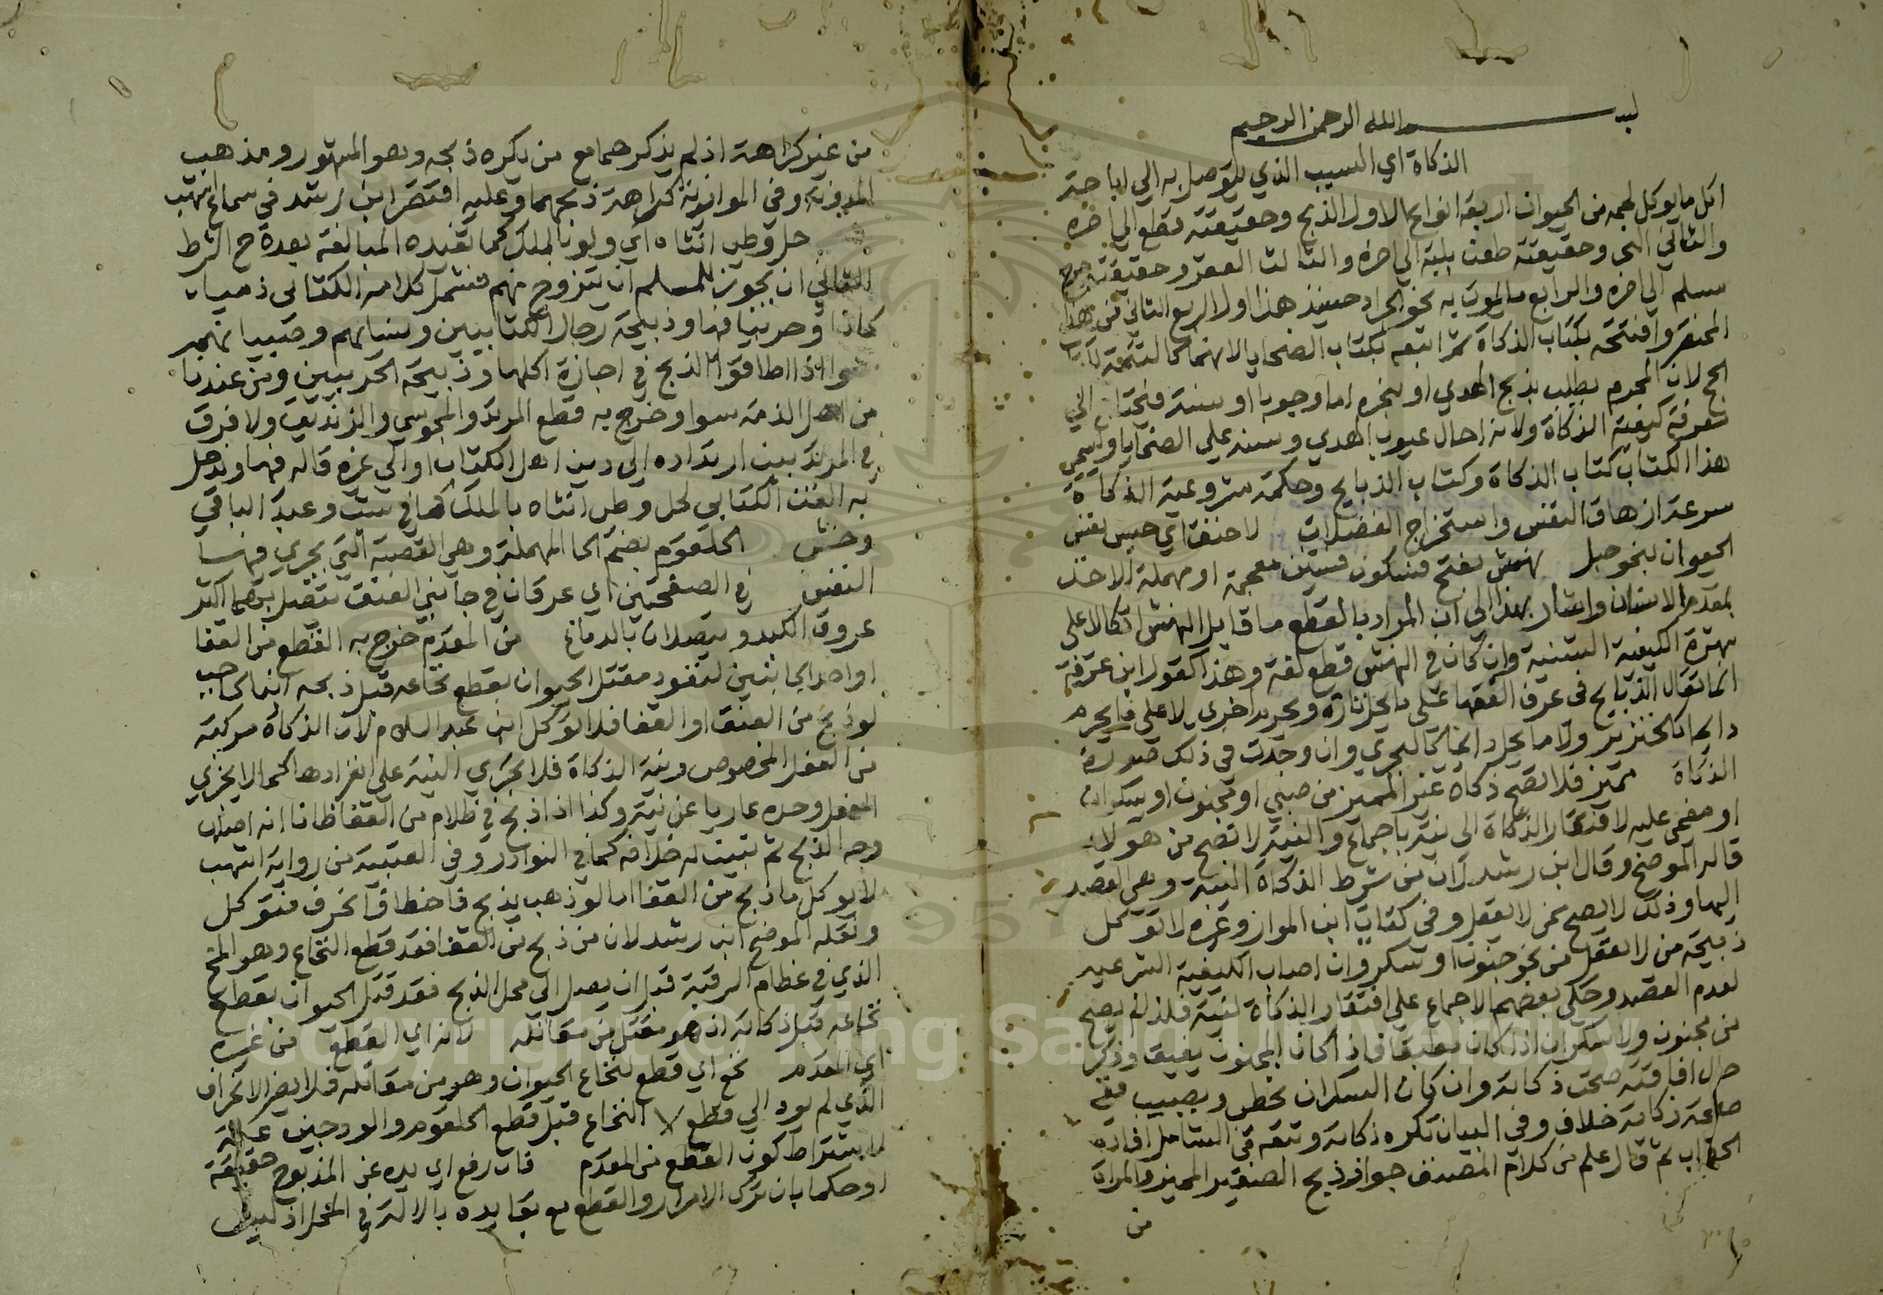 بسم الله الرحمن الرحيم
الذكاة اي السبب الذي يتوصل به الي اباحة
اكل ما يوكل لحمه من الحيوان اربعة انواع الاول الذبح وحقيقته قطع الي اخره
والثاني النحر وحقيقته طعن بلبة الي اخره والثالث العقر وحقيقته جرح
مسلم الي اخره والرابع ما يموت به نحو الجراد حينئذ هذا اول الربع الثاني من هذا
المختصر وافتتحه بكتاب الذكاة ثم اتبعه بكتاب الضحايا لانهما كالتتمة لكتاب
الحج لان المحرم يطلب بذبح الهدي او بنحره اما وجوبا او سنة فيحتاج الي
معرفة كيفية الذكاة ولانه احال عيوب الهدي وسنه علي الضحايا ويسمي
هذا الكتاب كتاب الذكاة وكتاب الذبايح وحكمة مشروعية الذكاة
سرعة ازهاق النفس واستخراج الفضلات لا خنق اي حبس نفس
الحيوان بنحو حبل نهش بفتح فسكون فشين معجمة او مهملة الاخذ
بمقدم الاسنان واشار بهذا الي ان المراد بالقطع ما قابل النهش اتكالا علي
شهرة الكيفية السنية وان كان في النهش قطع لغة وهذا كقول ابن عرفة
انما تقال الذبايح في عرف الفقها علي ما يحرز تارة ويحرم اخري لا علي ما يحرم
دايما كالخنزير ولا ما يحل دايما كالبحري وان وجدت في ذلك صورة
الذكاة مميز فلا تصح ذكاة غير المميز من صبي او مجنون او سكران
او مغمي عليه لافتقار الذكاة الي نية باجماع والنية لا تصح من هولاء
قاله الموضح وقال ابن رشد لان من شرط الذكاة النية وهي القصد
اليها وذلك لا يصح ممن لا يعقل وفي كتاب ابن المواز وغيره لا توكل
ذبيحة من لا يعقل من نحو جنون او سكر وان اصاب الكيفية الشرعية
لعدم القصد وحكي بعضهم الاجماع علي افتقار الذكاة لنية فلذا لم يصح
من مجنون ولا سكران اذا كان مطبقا فاذا كان المجنون يفيق وذكي
حال افاقته صحت ذكاته وان كان السكران يخطي ويصيب ففي
صحة ذكاته خلاف وفي البيان تكره ذكاته وتبعه في الشامل افاده
الحطاب ثم قال علم من كلام المصنف جواز ذبح الصغير المميز والمراة
من
من غير كراهة اذ لم يذكرهما مع من يكره ذبحه وهو المشهور ومذهب
المدونة وفي الموازية كراهة ذبحهما وعليه اقتصر ابن رشد في سماع اشهب
حل وطي انثاه اي ولو بالملك كما تفيده المبالغة بعده ح الشرط
الثاني ان يجوز للمسلم ان يتزوج منهم فشمل كلامه الكتابي ذميا
كان او حربيا وذبيحة رجال الكتابيين ونسايهم وصبيانهم
سوا اذا اطاقوا الذبح في اجازة اكلها وذبيحة الحربيين ومن عندنا
من اهل الذمة سوا وخرج به قطع المرتد والمجوسي والزنديق ولا فرق
في المرتد بين ارتداده الي دين اهل الكتاب او الي غيره قاله فيها ويدخل
به القن الكتابي لحل وطي انثاه بالملك كما في تت وعبد الباقي
وخش الحلقوم بضم الحا المهملة وهي القصبة التي يجري فيها
النفس في الصفحتين اي عرقان في جانبي العنق تتصل بهما اكثر
عروق الكبد ويتصلان بالدماغ من المقدم خرج به القطع من القفا
او احد الجانبين لنفوذ مقتل الحيوان بقطع نخاعه قبل ذبحه
لو ذبح من العنق او القفا فلا توكل ابن عبد السلام لان الذكاة مركبة
من الفعل المخصوص ونية الذكاة فلا تجزي النية علي انفرادها كما لا يجزي
الفعل وحده عاريا عن نية وكذا اذا ذبح في ظلام من القفا ظانا انه اصاب
وجه الذبح ثم تبين له خلافه كما في النوادر وفي العتبية من رواية اشهب
لا يوكل ما ذبح من القفا اما لو ذهب يذبح فاخطا فانحرف فتوكل
ونقله الموضح ابن رشد لان من ذبح من القفا فقد قطع النخاع وهو المخ
الذي في عظام الرقبة قبل ان يصل الي محل الذبح فقد قتل الحيوان بقطع
نخاعه قبل ذكاته اذ هو مقتل من مقاتله لانه اي القطع من غيره
اي المقدم نخع اي قطع لنخاع الحيوان وهو من مقاتله فلا يضر الانحراف
الذي لم يود الي قطع النخاع قبل قطع الحلقوم والودجين علة
لاشتراط كون القطع من المقدم فان رفع اي يده عن المذبوح حقيقة
او حكما بان ترك الامرار والقطع مع بقا يده بالالة في المحل اذ ليس